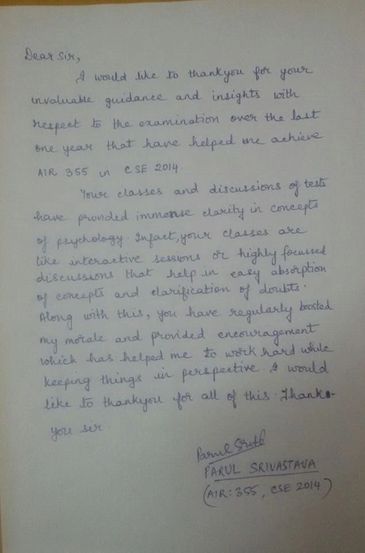 Dear Sir,
I would like to thankyou for your
invaluable guidance and insights with
respect to the examination over the last
one year that have helped me achieve
AIR 355 in CSE 2014
Your classes and discussions of tests
have provided immense clarity in concepts
of psychology. Infact, your classes are
like interactive sessions or highly focussed
discussions that help in easy absorption
of concepts and clarification of doubts.
Along with this, you have regularly boosted
my morale and provided encouragement
which has helped me to work hard while
keeping things in perspective. I would
like to thankyou for all of this. Thank-
you sir
Parul
PARUL SRIVASTAVA
(AIR: 355, CSE 2014)